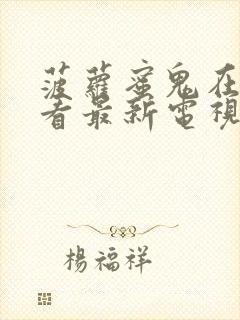 菠蘿蜜鬼在
看最新電視
楊福祥